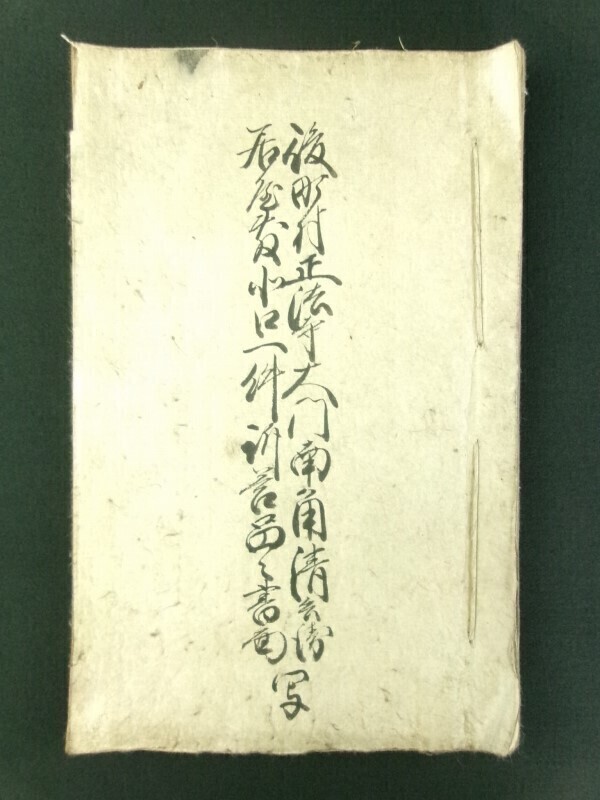 後町村正法寺大門南角清兵衛
居屋敷水口一件訴答品々書面写